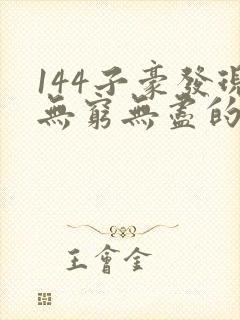 144子豪發現
無窮無盡的
王會金